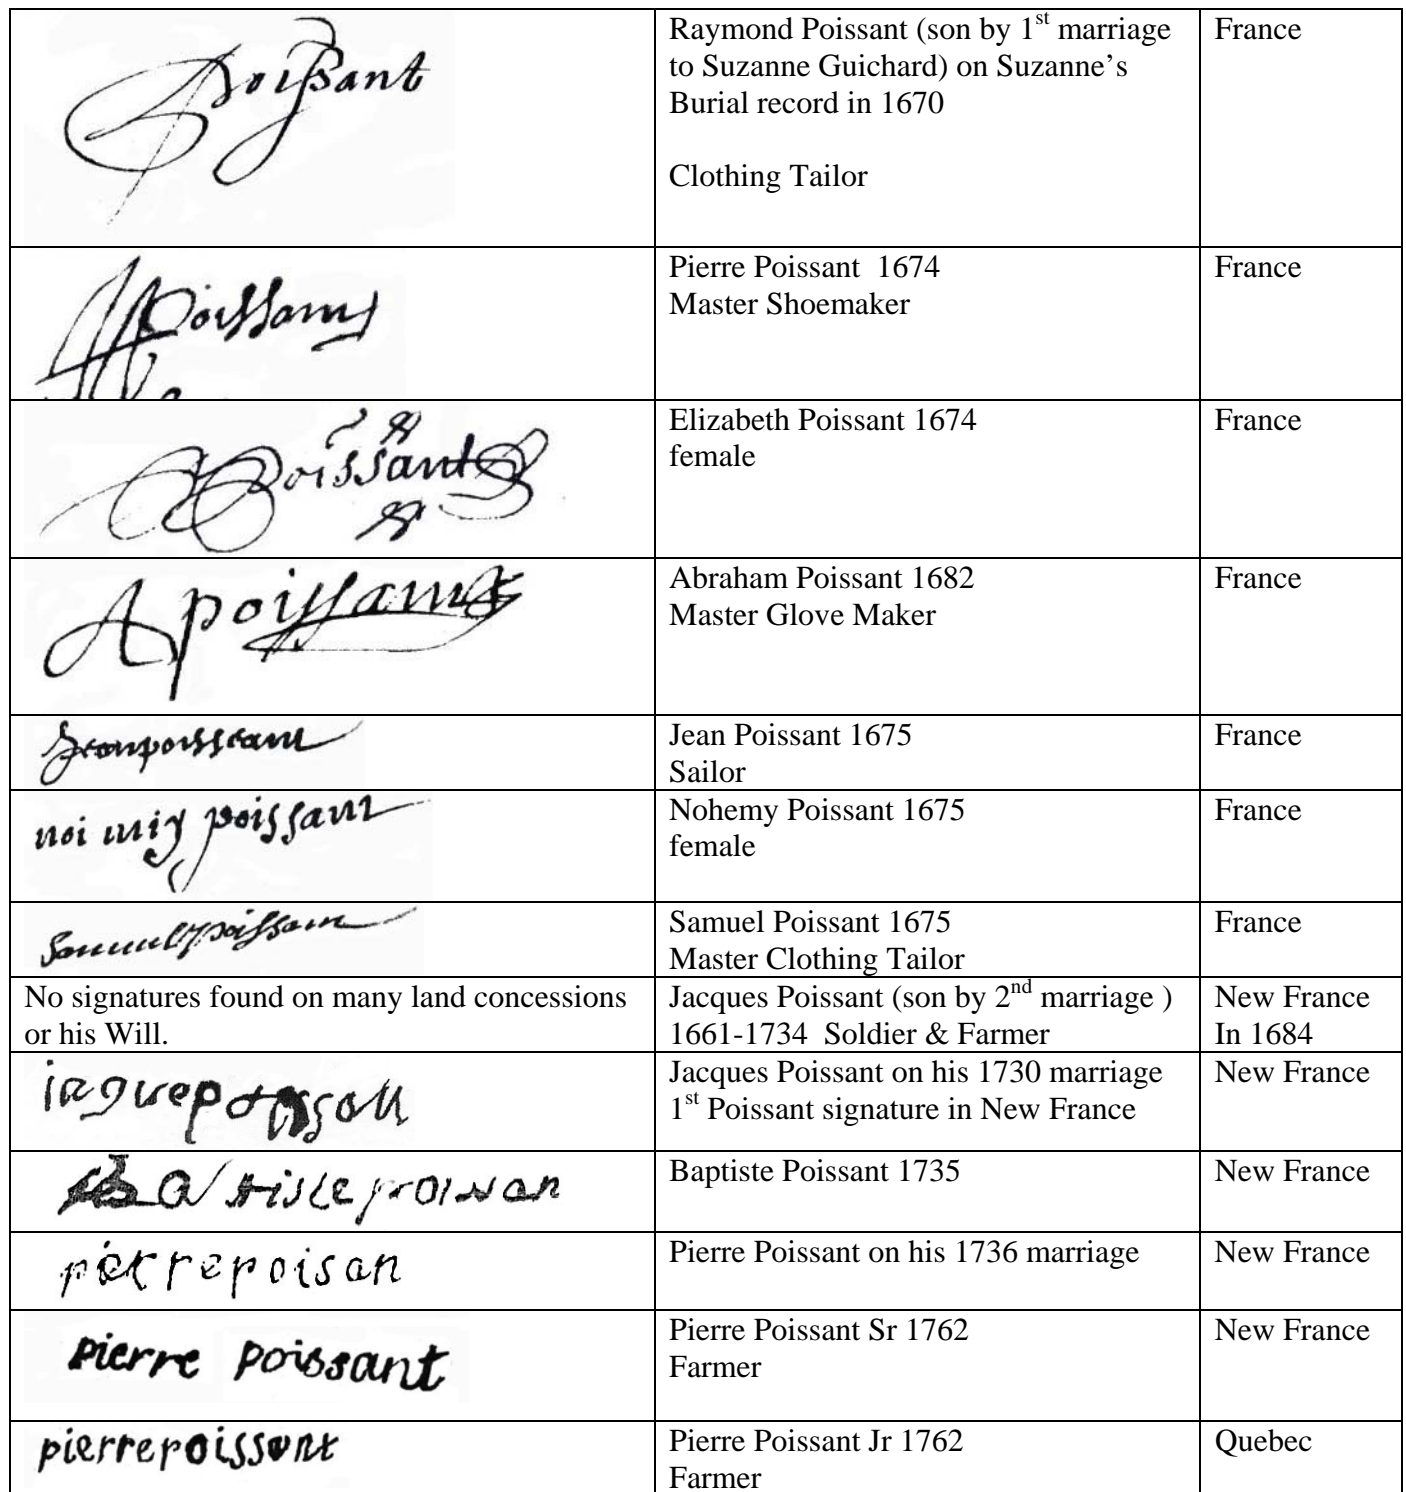 Poissant
Raymond Poissant (son by 1st marriage
to Suzanne Guichard) on Suzanne’s
Burial record in 1670
Clothing Tailor
France
Poissant
Pierre Poissant 1674
Master Shoemaker
France
Poissant
Elizabeth Poissant 1674
female
France
A poissant
Abraham Poissant 1682
Master Glove Maker
France
Jeanpoisseant
Jean Poissant 1675
Sailor
France
noi miy poissant
Nohemy Poissant 1675
female
France
Samuel poissant
Samuel Poissant 1675
Master Clothing Tailor
France
No signatures found on many land concessions
or his Will.
Jacques Poissant (son by 2nd marriage )
1661-1734 Soldier & Farmer
New France
In 1684
Jacques Poissant on his 1730 marriage
1st Poissant signature in New France
New France
Baptiste Poissant 1735
New France
pierrepoisan
Pierre Poissant on his 1736 marriage
New France
pierre poissant
Pierre Poissant Sr 1762
Farmer
New France
pierrepoissant
Pierre Poissant Jr 1762
Farmer
Quebec